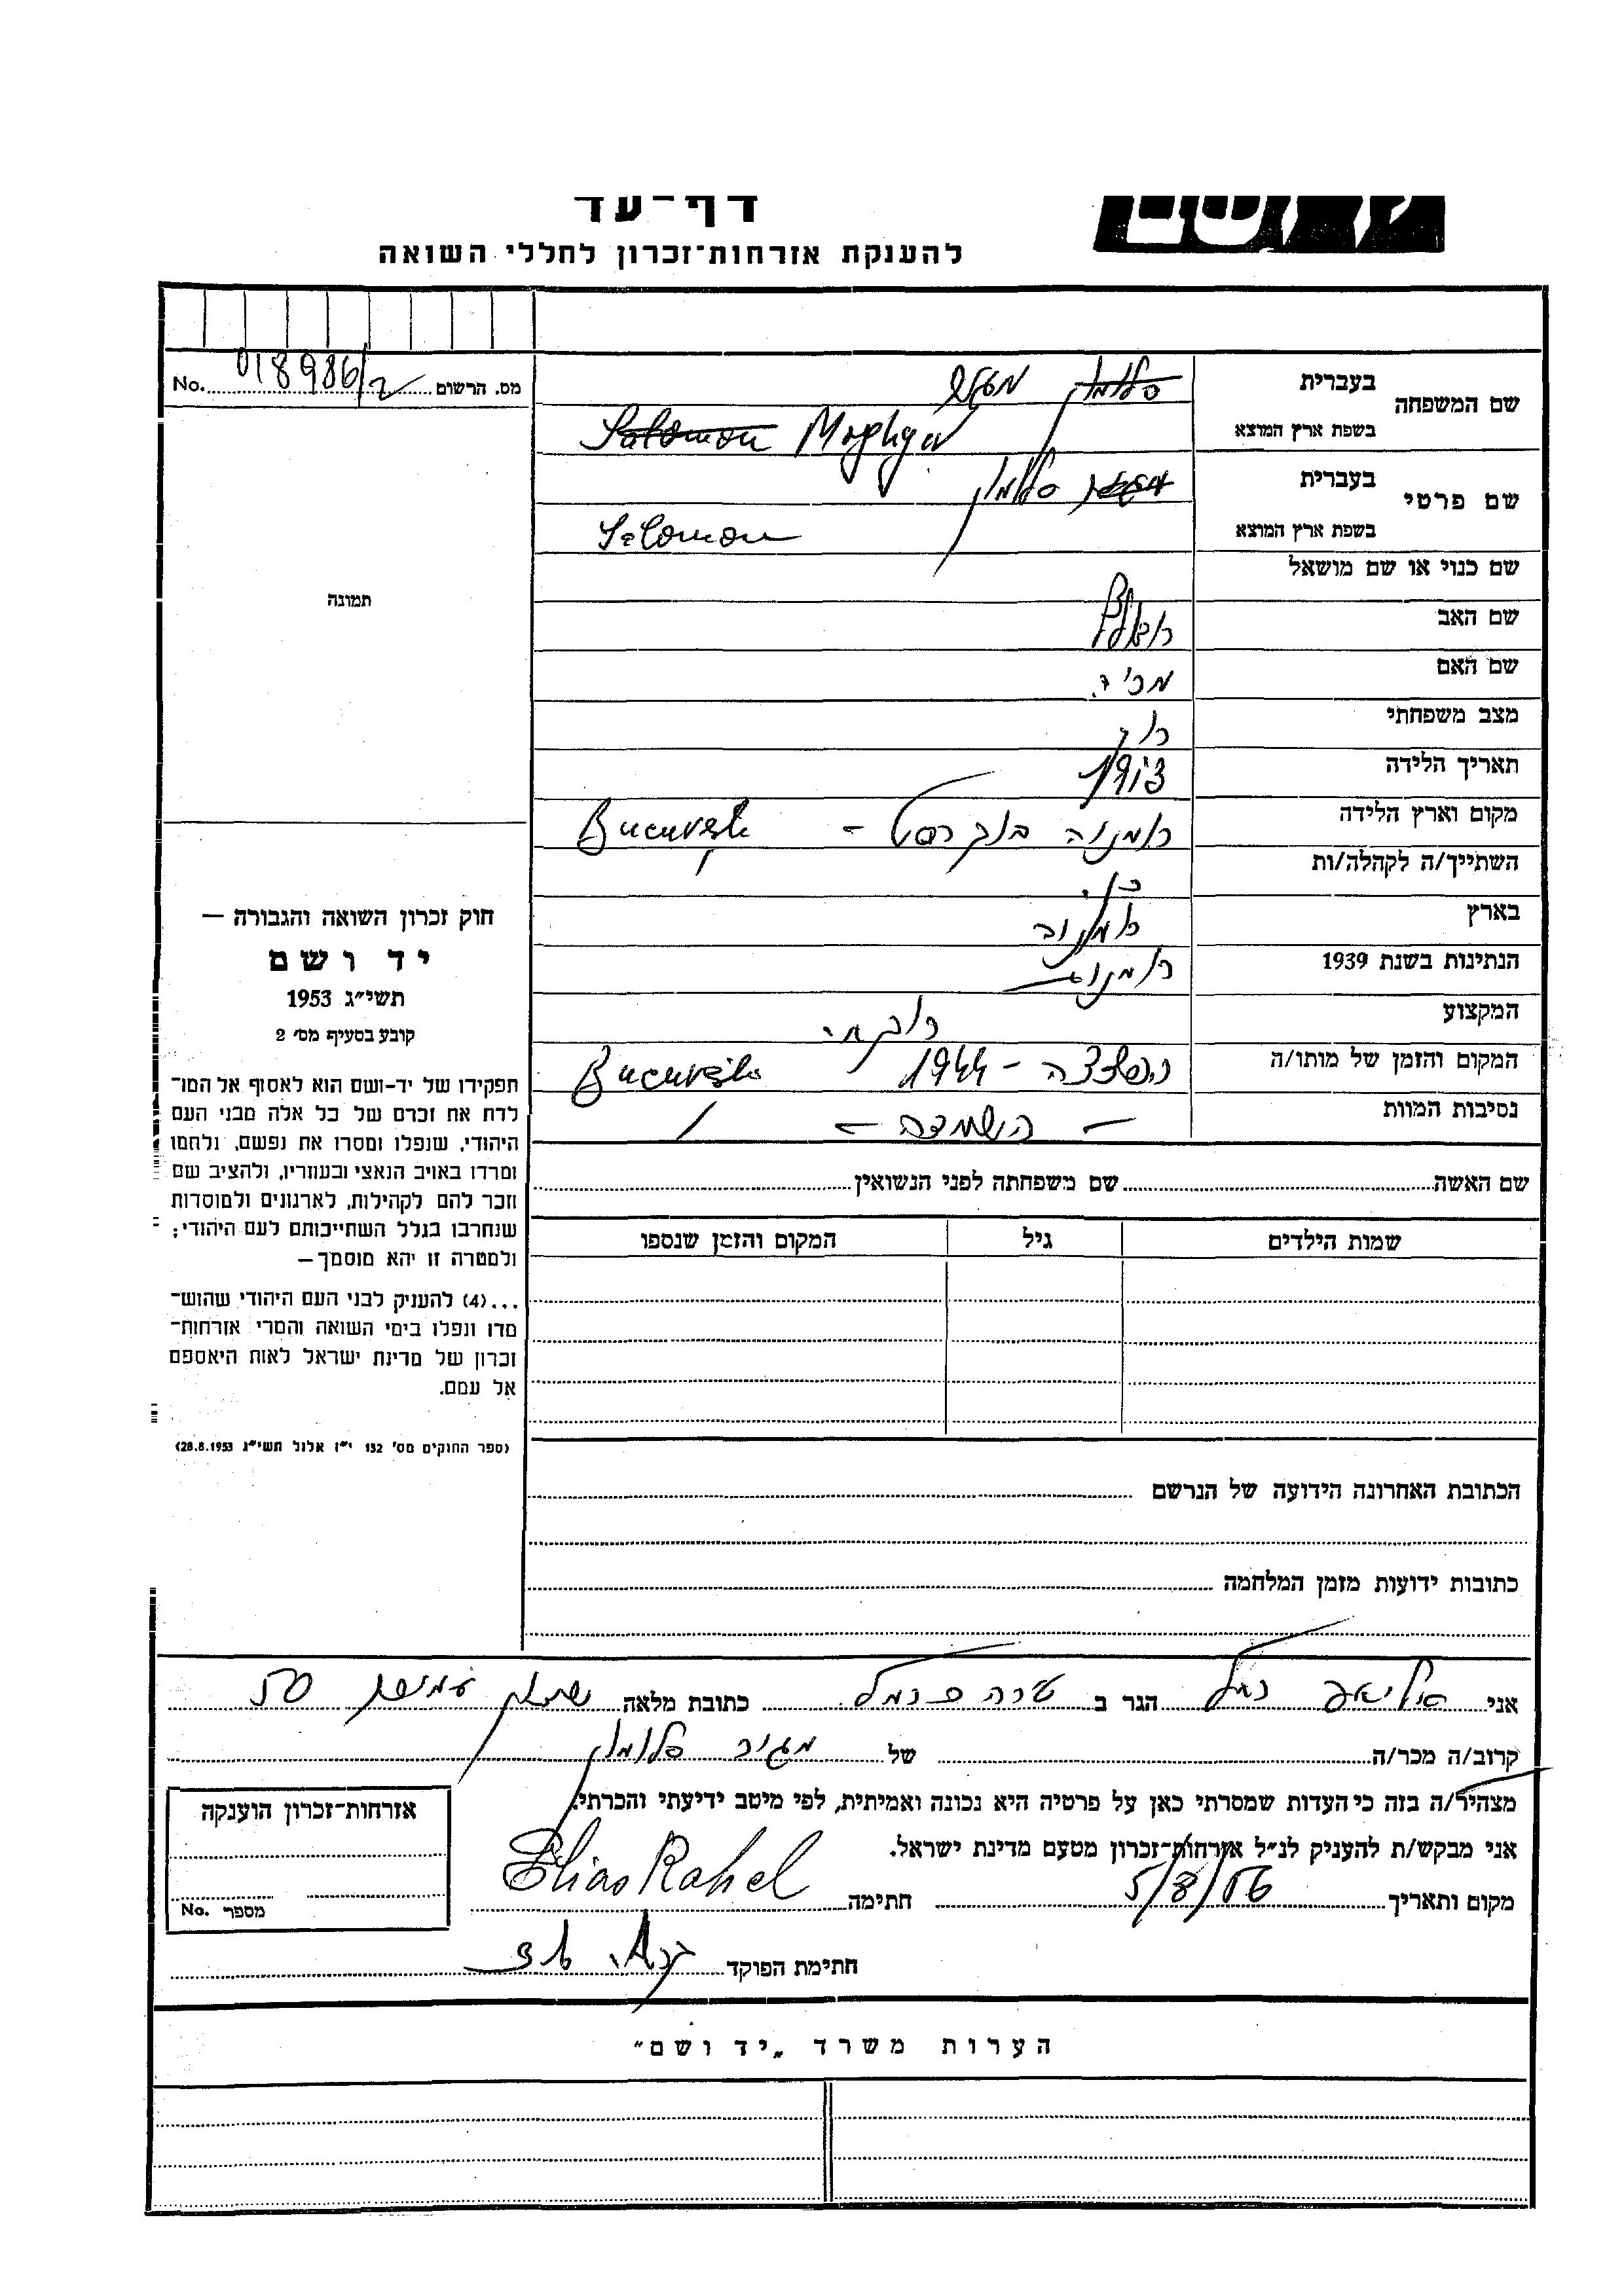 דף-עד
להענקת אזרחות-זכרון לחללי השואה
No. 018986/2 מס. הרשום
שם המשפחה
בעברית סלומון
בשפת ארץ המוצא Salomon
שם פרטי
בעברית סלומון
בשפת ארץ המוצא Salomon
שם כנוי או שם מושאל
שם האב
שם האם
מצב משפחתי רוק
תאריך הלידה
מקום וארץ הלידה רומניה בוקרסט - Bucuresti
השתייך/ה לקהלה/ות
בארץ רומניה
הנתינות בשנת 1939 רומנית
המקצוע
המקום והזמן של מותו/ה 1944 - Bucuresti
נסיבות המוות - השמדה -
תמונה
חוק זכרון השואה והגבורה —
יד ושם
תשי״ג 1953
קובע בסעיף מס׳ 2
תפקידו של יד-ושם הוא לאסוף אל המו־
לדת את זכרם של כל אלה מבני העם
היהודי, שנפלו ומסרו את נפשם, נלחמו
ומרדו באויב הנאצי ובעוזריו, ולהציב שם
וזכר להם לקהילות, לארגונים ולמוסדות
שנחרבו בגלל השתייכותם לעם היהודי;
ולמטרה זו יהא מוסמך—
...(4) להעניק לבני העם היהודי שהוש־
מדו ונפלו בימי השואה והמרי אזרחות־
זכרון של מדינת ישראל לאות היאספם
אל עמם.
(ספר החוקים מס׳ 132 י״ז אלול תשי״ג 28.8.1953)
שם האשה שם משפחתה לפני הנשואין
שמות הילדים גיל המקום והזמן שנספו
הכתובת האחרונה הידועה של הנרשם
כתובות ידועות מזמן המלחמה
אני אליאס רחל הגר ב טירה כרמל כתובת מלאה שכון עמישב 50
קרוב/ה מכר/ה של סלומון
מצהיר/ה בזה כי העדות שמסרתי כאן על פרטיה היא נכונה ואמיתית, לפי מיטב ידיעתי והכרתי.
אני מבקש/ת להעניק לנ״ל אזרחות־זכרון מטעם מדינת ישראל.
מקום ותאריך 5/8/56 חתימה Elias Rahel
חתימת הפוקד
אזרחות־זכרון הוענקה
No. מספר
הערות משרד „יד ושם״